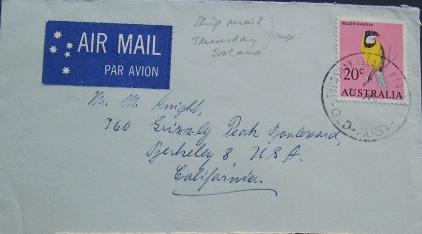 AIR MAIL
PAR AVION
Ship mail
Thursday
Island
GOLDEN WHISTLER
20c
AUSTRALIA
THURSDAY ISLAND
QLD-AUST
Mr. M. Knight,
760 Grizzly Peak Boulevard,
Berkeley 8 U.S.A.
California.